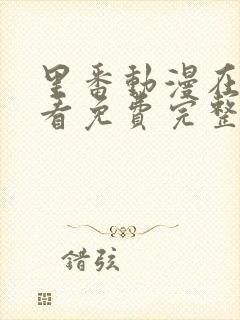 里番動漫在
看免費完整
錯弦